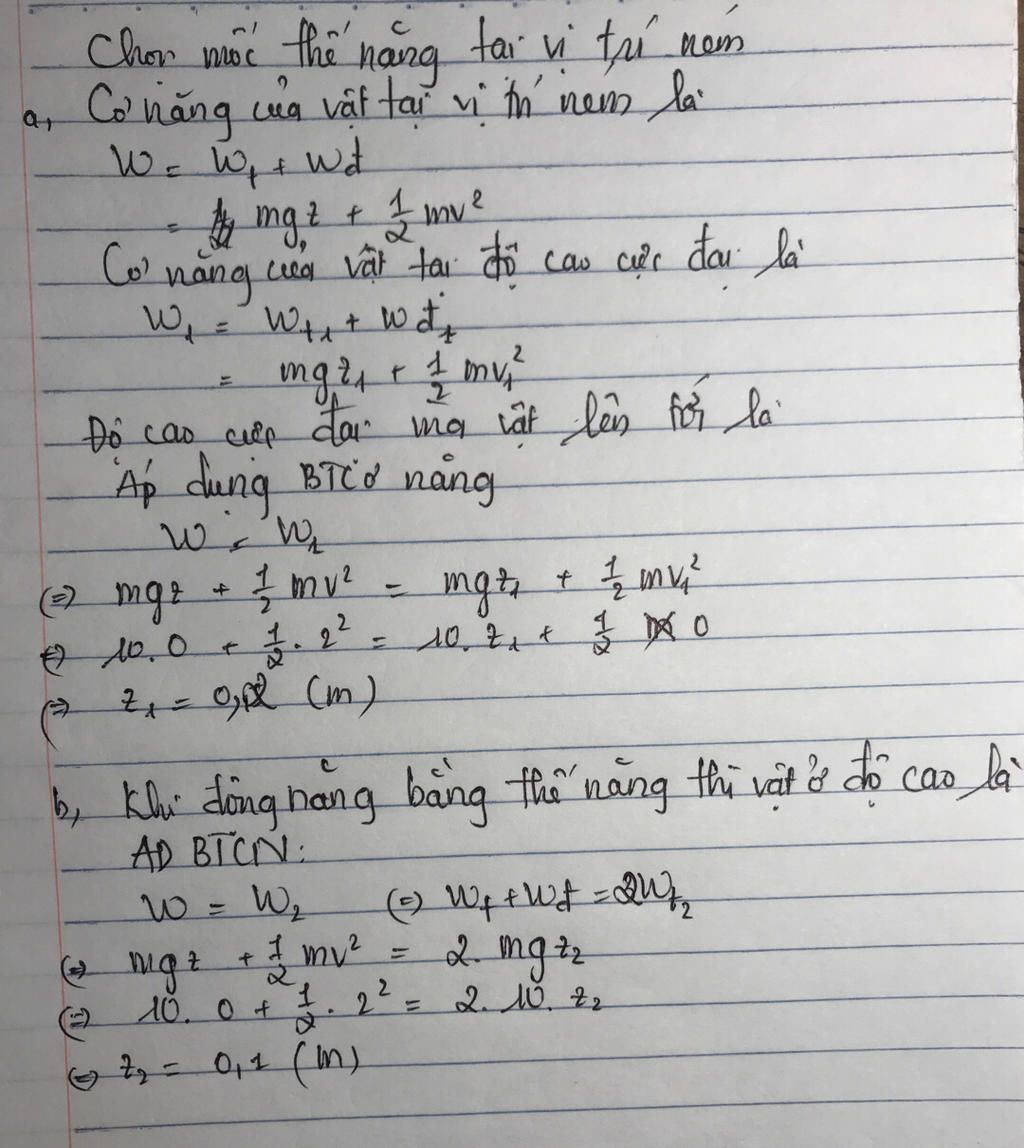 Chọn mốc thế năng tại vị trí ném
a, Cơ năng của vật tại vị trí ném là
W = Wt + Wđ
= mgz + 1/2 mv²
Cơ năng của vật tại độ cao cực đại là
W1 = Wt1 + Wđ1
= mgz1 + 1/2 mv1²
Độ cao cực đại mà vật lên tới là
Áp dụng BTCơ năng
W = W1
(=) mgz + 1/2 mv² = mgz1 + 1/2 mv1²
(=) 10. 0 + 1/2 . 2² = 10. z1 + 1/2 0
(=) z1 = 0,2 (m)
b, Khi động năng bằng thế năng thì vật ở độ cao là
AD BTCN:
W = W2 (=) Wt + Wđ = 2Wt2
(=) mgz + 1/2 mv² = 2. mgz2
(=) 10. 0 + 1/2 . 2² = 2. 10. z2
(=) z2 = 0,1 (m)